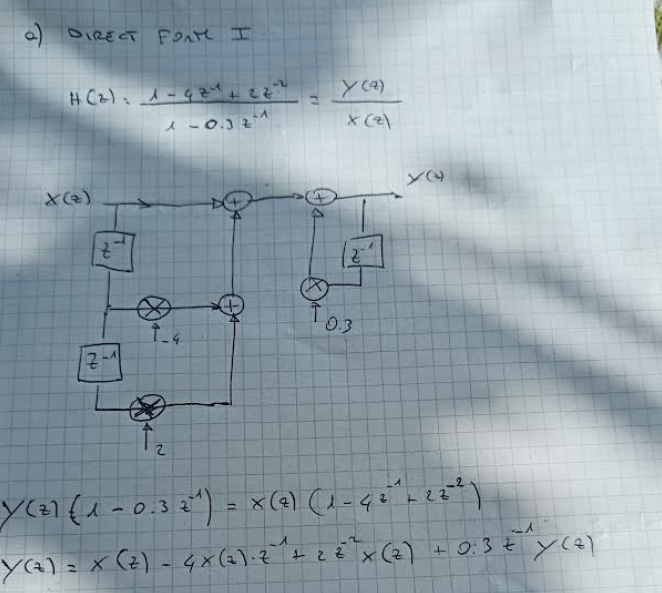 a) DIRECT FORM I
H(z) = 1 - 4z^-1 + 2z^-2 / 1 - 0.3z^-1 = Y(z) / X(z)
X(z) + + Y(z)
z^-1 z^-1
× + × 0.3
-4
z^-1
×
2
Y(z) (1 - 0.3z^-1) = X(z) (1 - 4z^-1 + 2z^-2)
Y(z) = X(z) - 4X(z)·z^-1 + 2z^-2 X(z) + 0.3z^-1 Y(z)